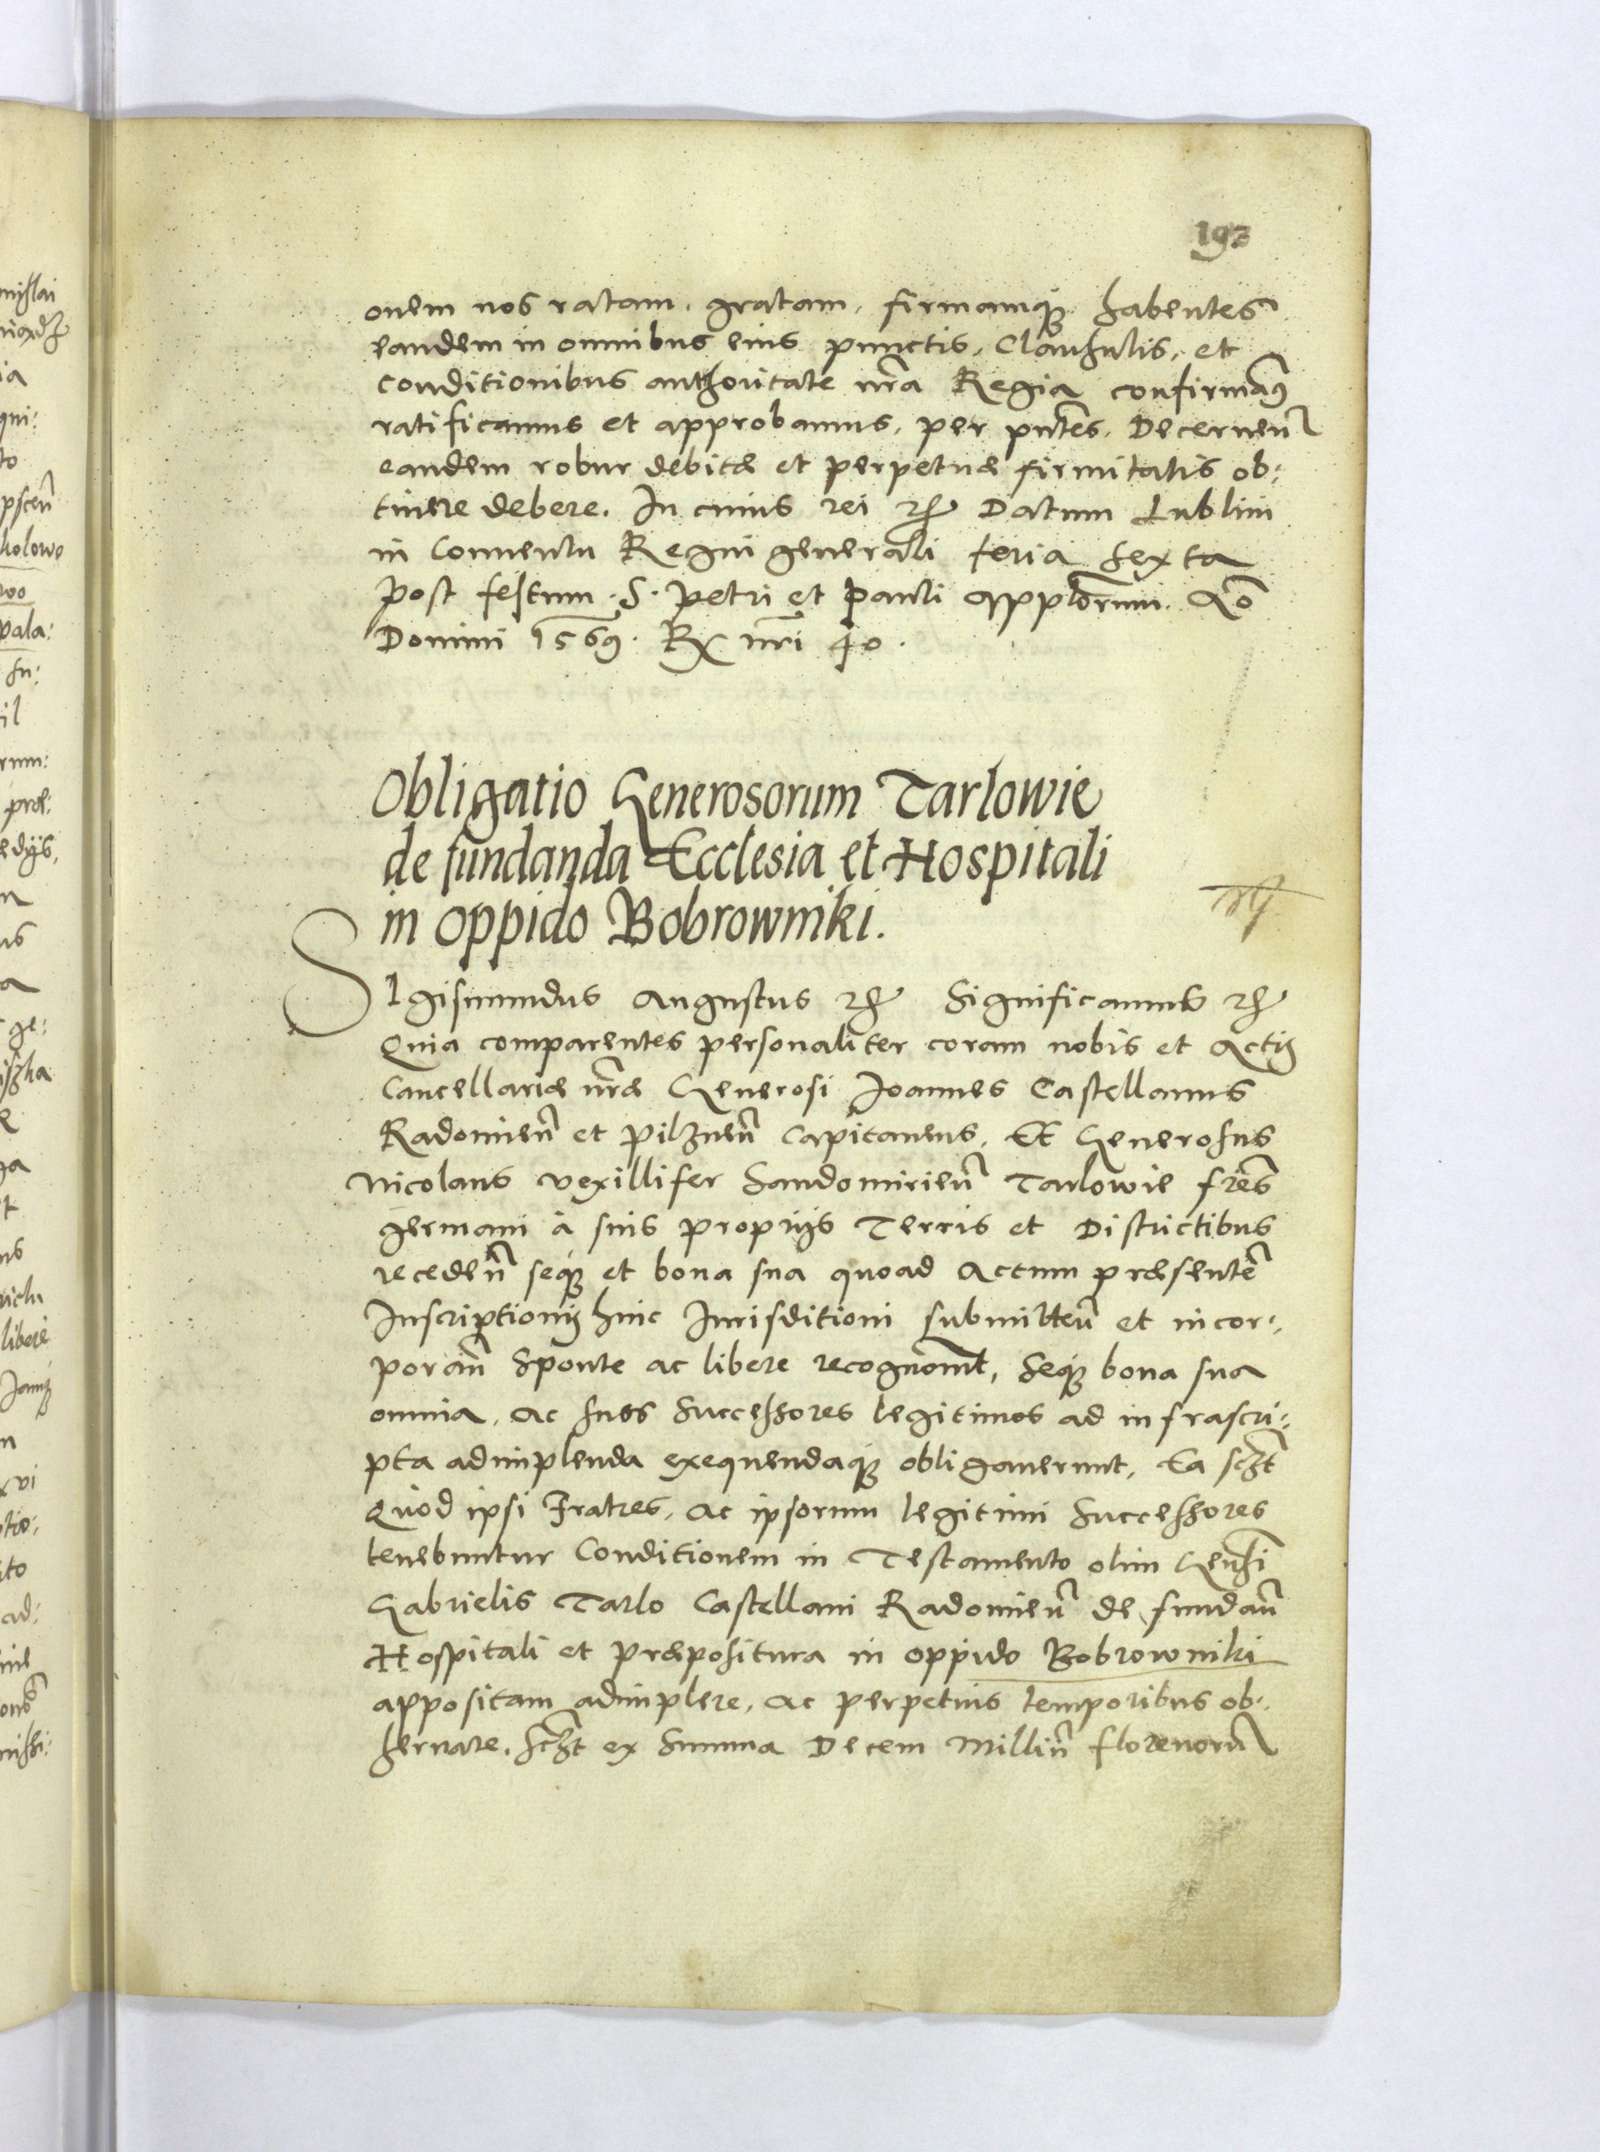 193
onem nos ratam, gratam, firmamq́ꝫ habentes
eandem in omnibus eius punctis, Clausulis, et
conditionibus authoritate nr̃a Regia confirmamꝰ
ratificamus et approbamus, per pñtes. Decernen̄
eandem robur debitæ et perpetuæ firmitatis ob:
tinere debere. In cuius rei etc̃ Datum Lublini
in Conuentu Regni generali feria sexta
post festum .S. Petri et Pauli applorum. Aõ
Domini 1569. Rx nr̃i 40.
Obligatio Generosorum Tarlowie
de fundanda Ecclesia et Hospitali
in oppido Bobrowniki.
SIgismundus Augustus etc̃ Significamus etc̃
Quia comparentes personaliter coram nobis et Actis
Cancellariæ nr̃æ Generosi Joannes Castellanus
Radomien̄ et Pilznen̄ Capitaneus, Et Generosus
Nicolaus vexillifer Sandomirien̄ Tarlowie fr̃es
germani à suis proprijs Terris et Districtibus
receden̄ seq́ꝫ et bona sua quoad Actum præsentem̄
Inscriptionis huic Iurisditioni submitten̄ et incor:
poran̄ sponte ac libere recognoũt, Seq́ꝫ bona sua
omnia, ac suos Successores legitimos ad infrascri:
pta adimplenda exequendaq́ꝫ obligauerunt, Ea sczt̃
Quod ipsi Fratres, ac ipsorum legitimi Successores
tenebuntur Conditionem in Testamento olim Gen̄si
Gabrielis Tarlo Castellani Radomien̄ de fundan̄
Hospitali et Præpositura in oppido Bobrowniki
appositam adimplere, ac perpetuis temporibus ob:
seruare, sczt̃ ex Summa Decem Milliũ florenorũ